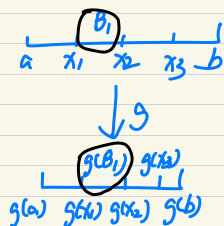 B₁
a x₁ x₂ x₃ b
g
g(B₁) g(x₃)
g(a) g(x₁) g(x₂) g(b)